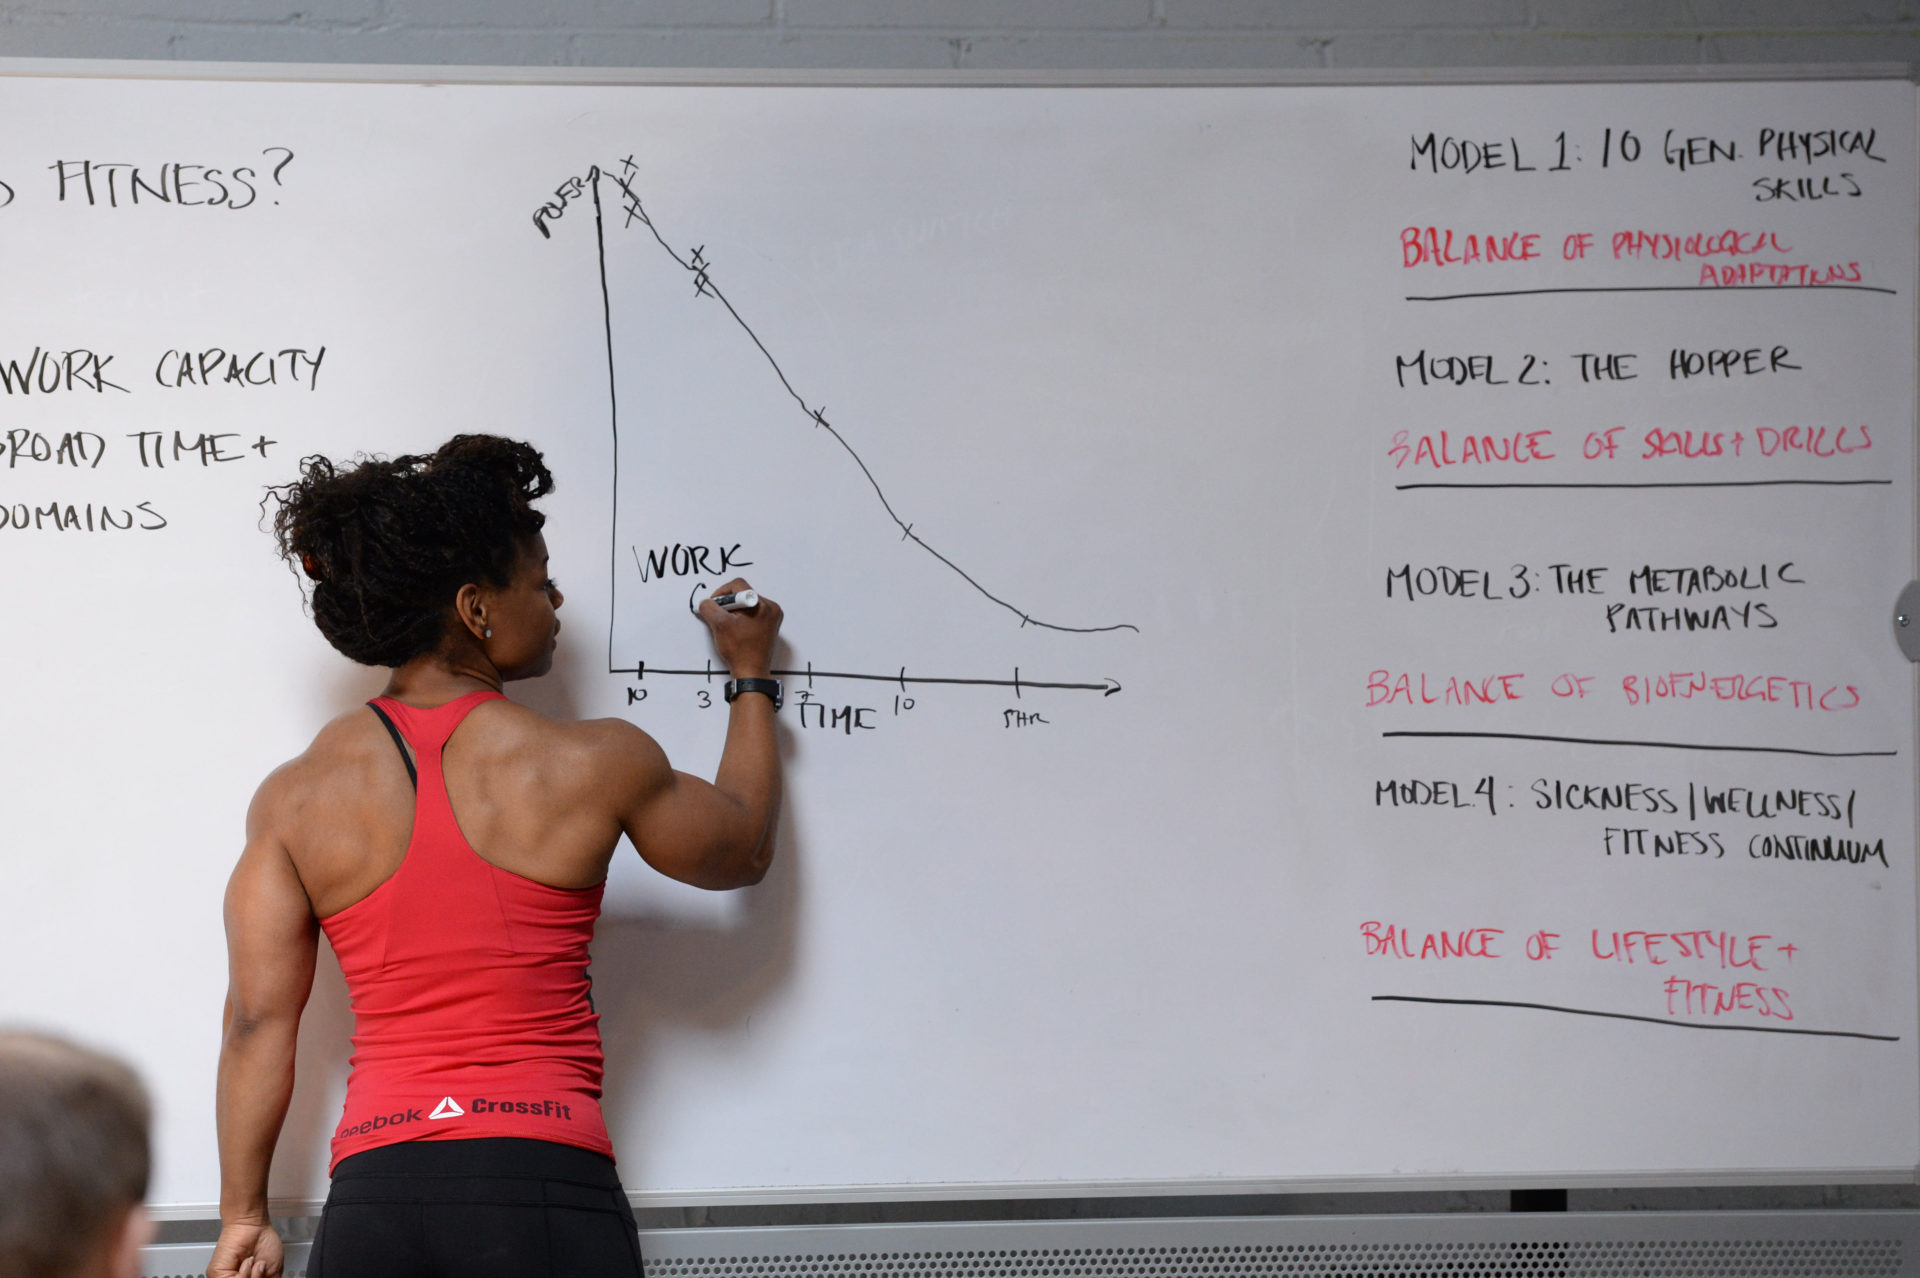 FITNESS?
WORK CAPACITY
BROAD TIME +
DOMAINS
POWER
WORK
C
10 3 7 10 5HR
TIME
MODEL 1: 10 GEN. PHYSICAL
SKILLS
BALANCE OF PHYSIOLOGICAL
ADAPTATIONS
MODEL 2: THE HOPPER
BALANCE OF SKILLS + DRILLS
MODEL 3: THE METABOLIC
PATHWAYS
BALANCE OF BIOENERGETICS
MODEL 4: SICKNESS/WELLNESS/
FITNESS CONTINUUM
BALANCE OF LIFESTYLE +
FITNESS
reebok CrossFit